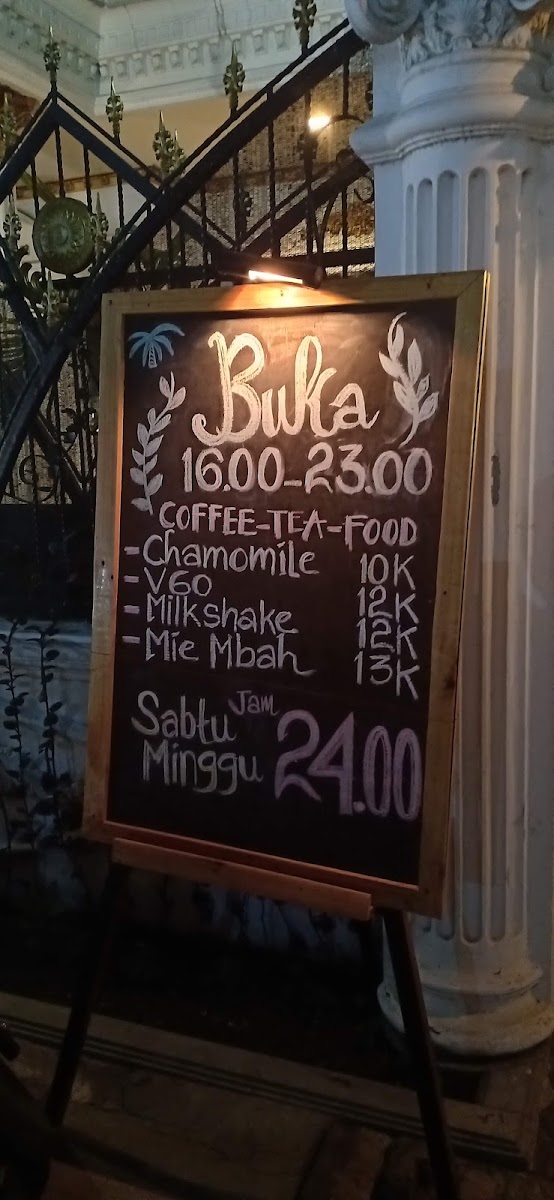 Buka
16.00-23.00
COFFEE-TEA-FOOD
-Chamomile 10K
-V60 12K
-Milkshake 12K
-Mie Mbah 13K
Sabtu Jam 24.00
Minggu